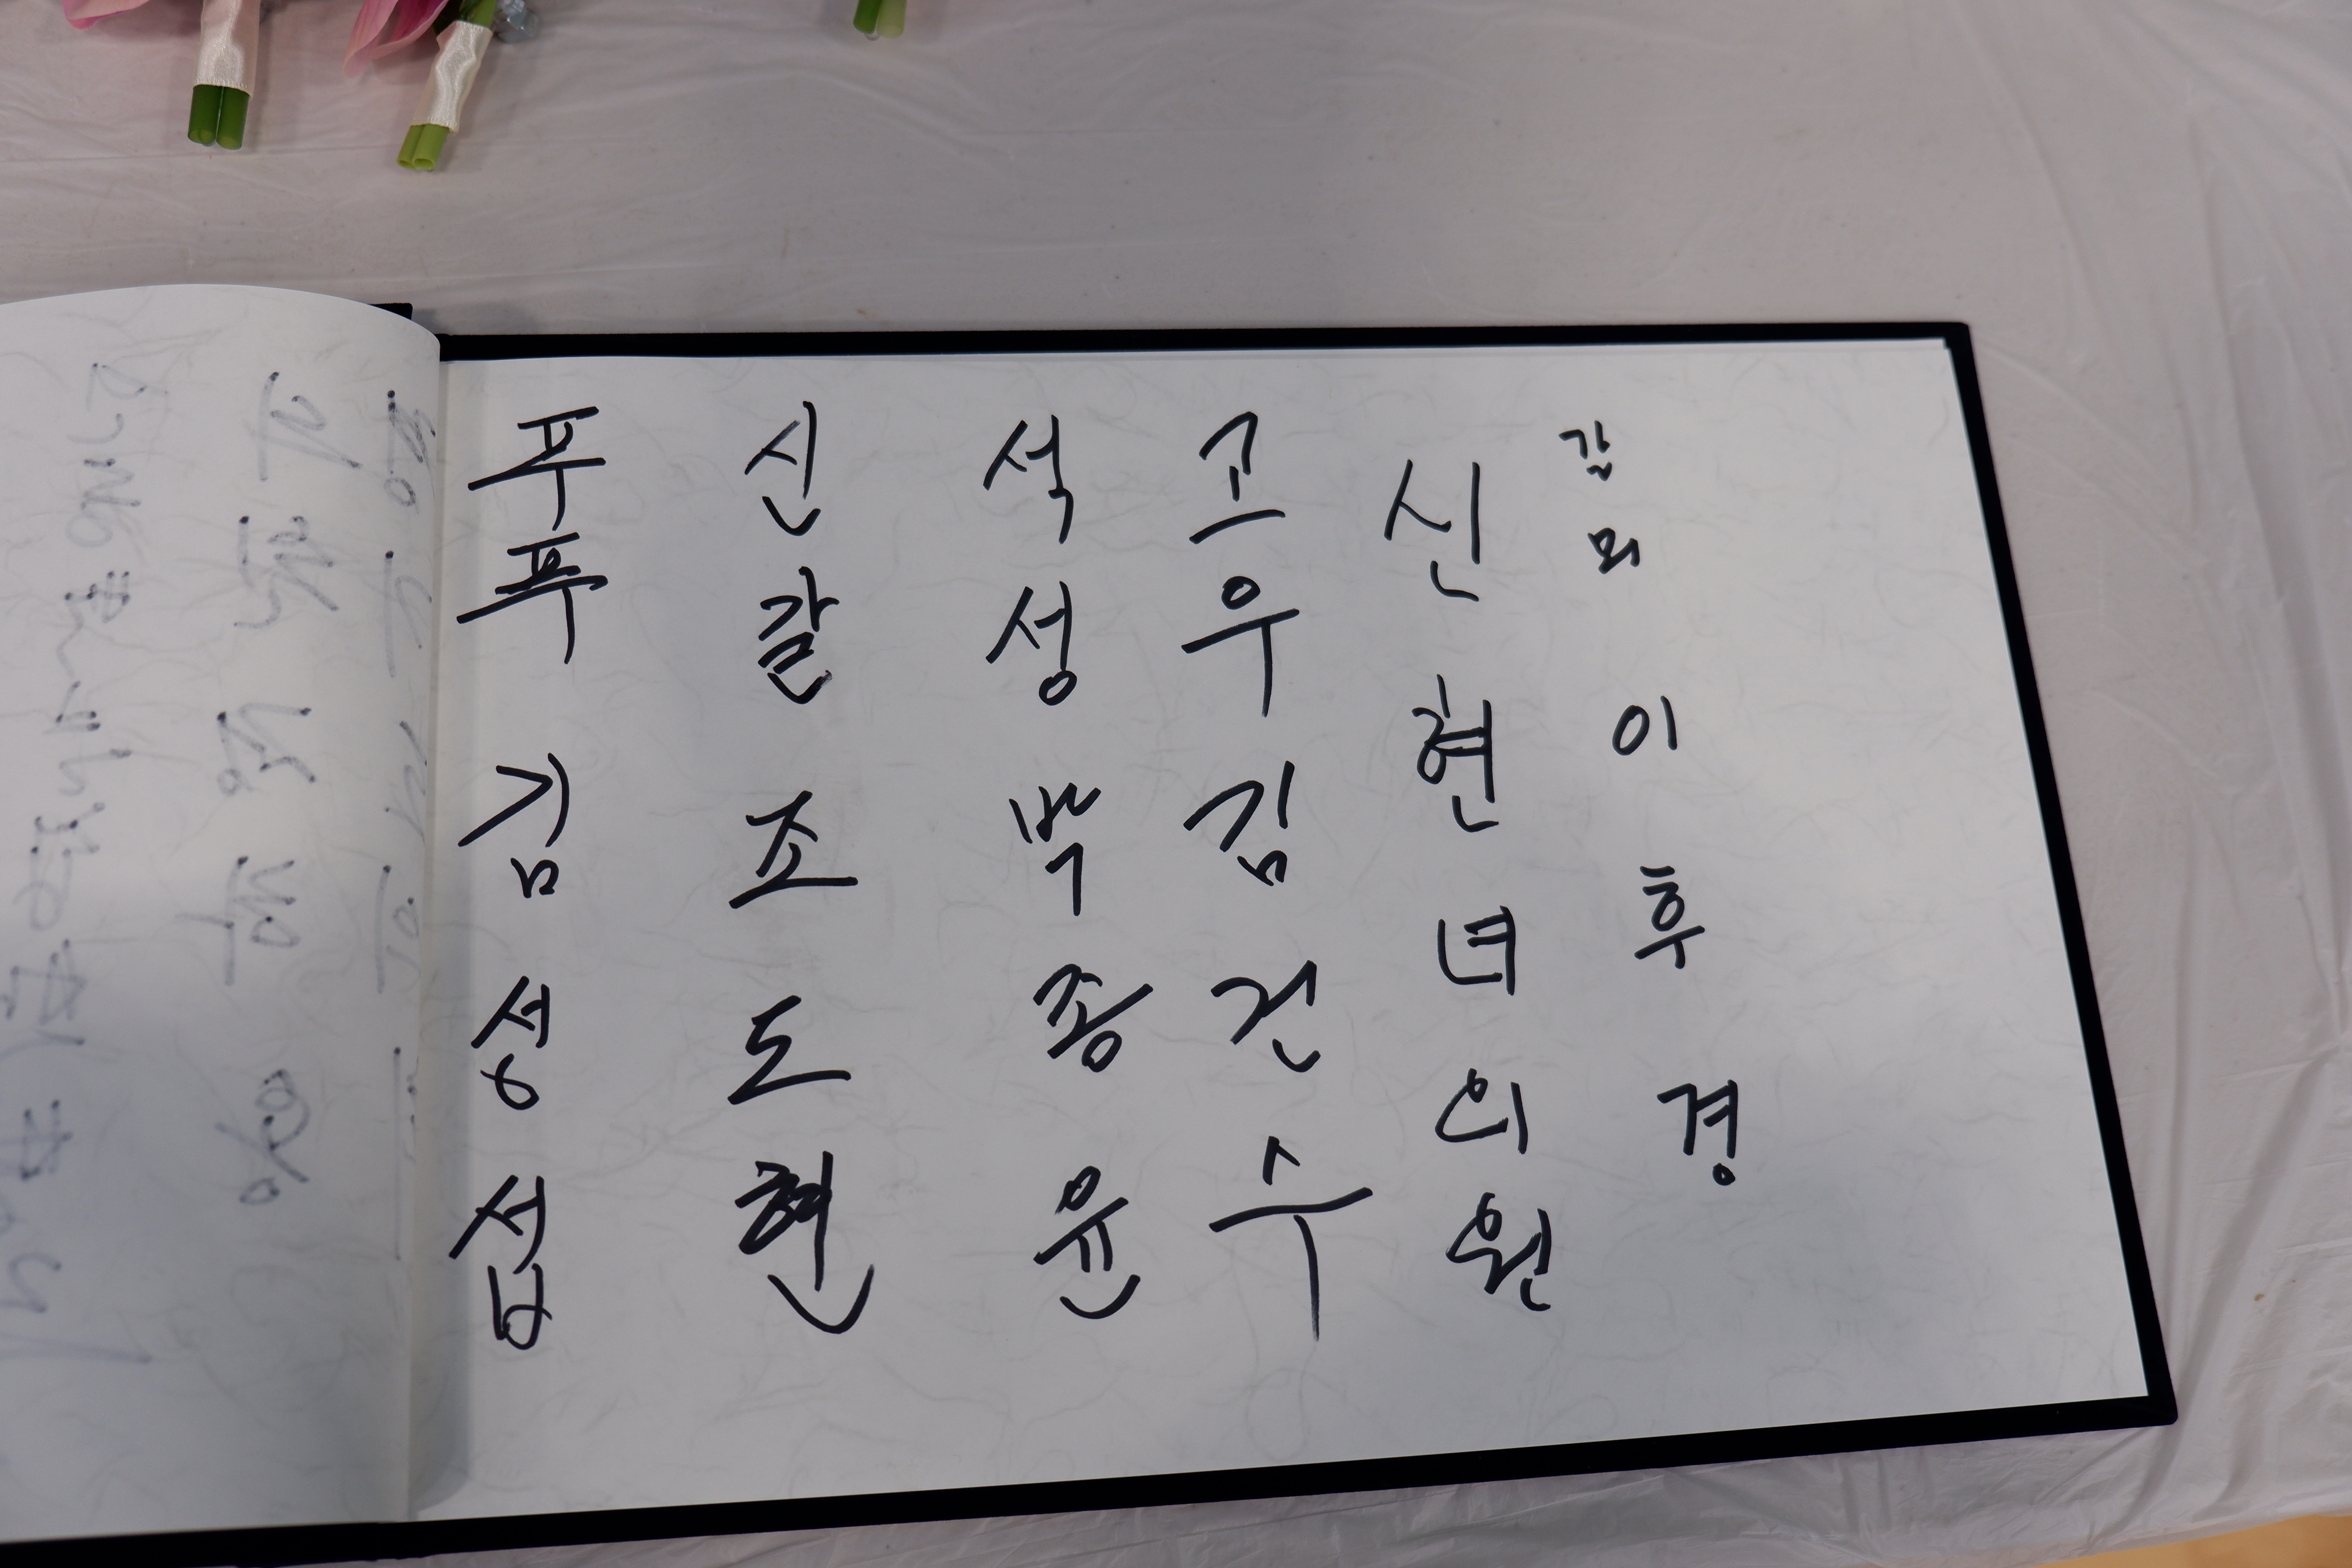 푸푸 김성섭
신갈 조도현
석성 박종윤
고우 김건수
신현녀의원
갈뫼 이후경